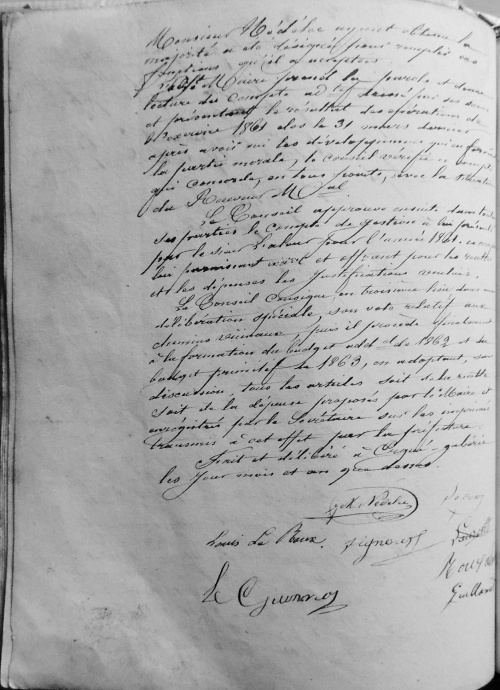 Monsieur Nédélec ayant obtenu la
majorité a été désigné pour remplir ces
fonctions qu'il a acceptées
Maire prend la parole et donne
lecture du compte ad tif dressé par ses soins
et présentant le résultat des opérations de
l'exercice 1861 clos le 31 mars dernier
après avoir oui les développements qui en forment
la partie morale, le conseil vérifie ce compte
qui concorde, en tous points, avec la situation
du Receveur M
Le Conseil approuve ensuite dans toutes
ses parties le compte de gestion à lui présenté
par le sieur pour l'année 1861. ce compte
lui paraissant exact et offrant pour les recettes
et les dépenses les justifications voulues.
Le Conseil consigne, en troisième lieu, dans une
délibération spéciale, son vote relatif aux
chemins vicinaux, puis il procède
à la formation du budget add. el de 1862 et du
budget primitif de 1863, en adoptant, sans
discussion, tous les articles soit de la recette
soit de la dépense proposés par le Maire et
enregistrés par le Secrétaire sur les imprimés
transmis à cet effet par la préfecture.
Fait et délibéré à
les jour mois et an que dessus.
Louis Le Roux.
Le